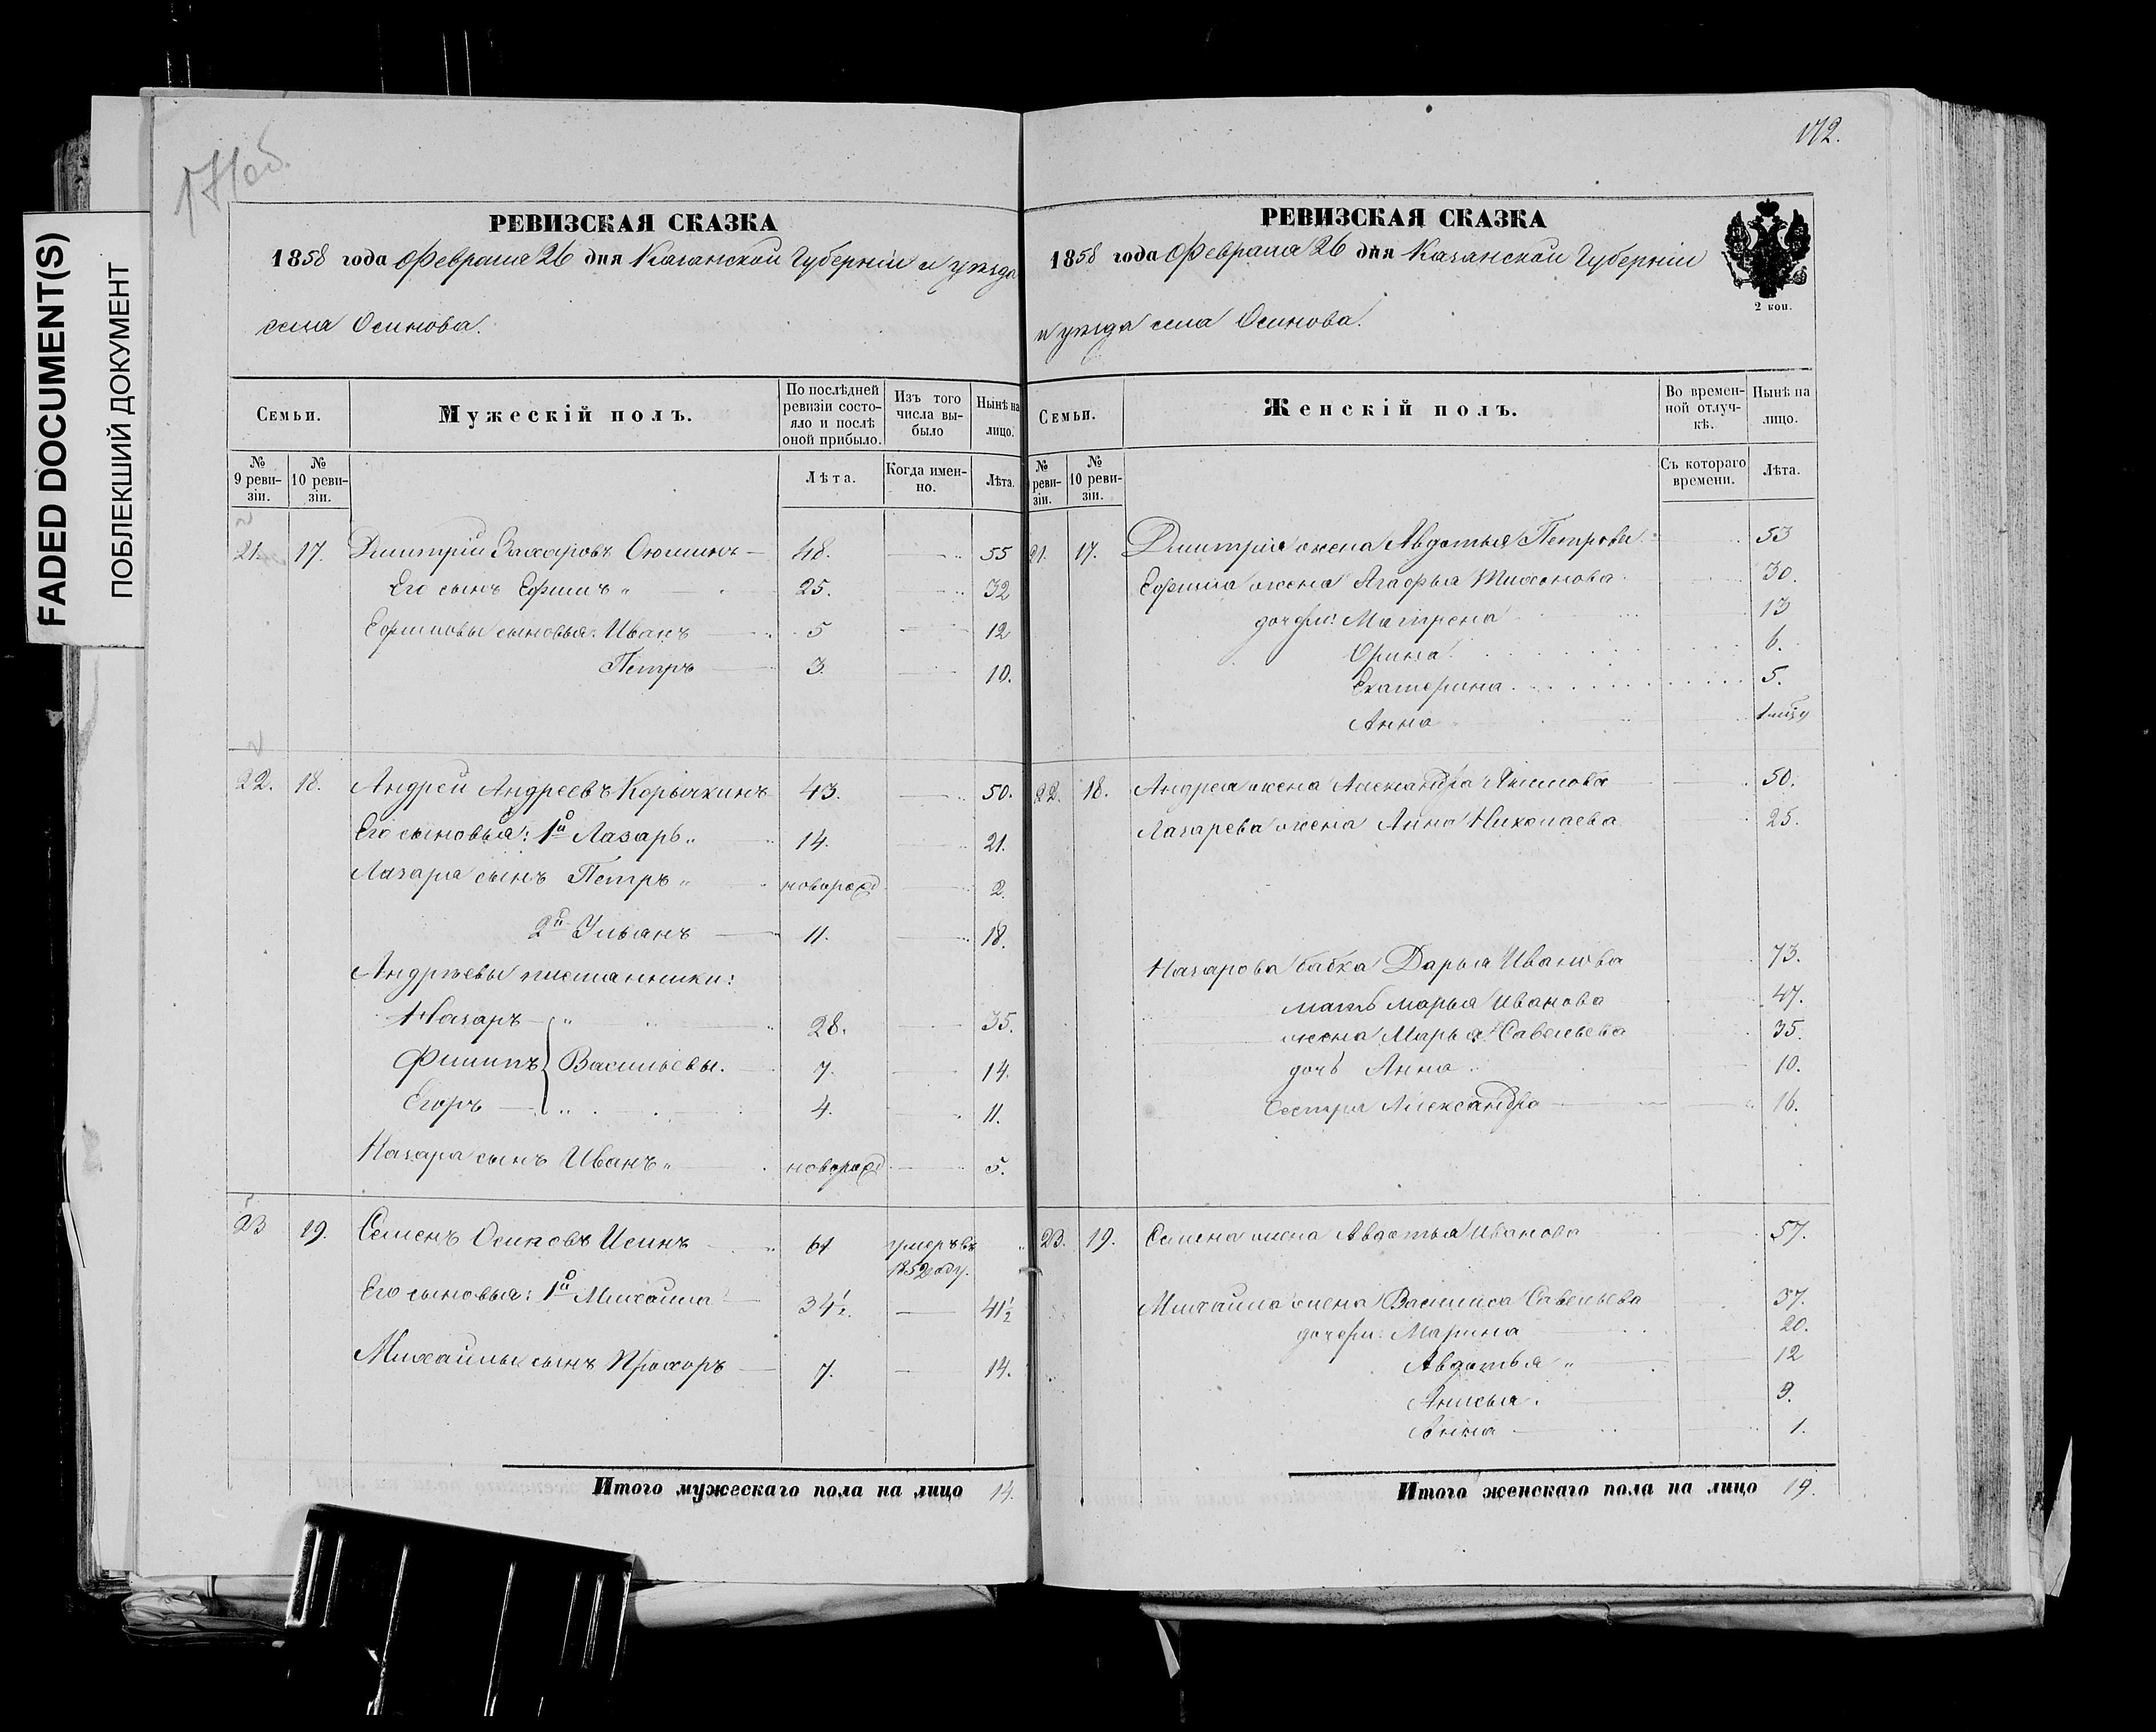 FADED DOCUMENT(S)
ПОБЛЕКШИЙ ДОКУМЕНТ
171 об.
РЕВИЗСКАЯ СКАЗКА
1858 года Февраля 26 дня Казанской Губерніи и уѣзда
села Осинова.
Семьи.
Мужескій полъ.
По послѣдней ревизіи состояло и послѣ оной прибыло.
Изъ того числа выбыло
Нынѣ на лицо.
№ 9 ревизіи.
№ 10 ревизіи.
Лѣта.
Когда именно.
Лѣта.
21. 17. Дмитрій Захаровъ 48. 55
Его сынъ Ефимъ 25. 32
Ефимовы сыновья: Иванъ 5 12
Петръ 3. 10.
22. 18. Андрей Андреевъ Корычкинъ 43. 50.
Его сыновья: 1й Лазарь 14. 21.
Лазаря сынъ Петръ новорожд 2.
2й Ульянъ 11. 18.
Андрѣевы племянники:
Назаръ 28. 35.
Филипъ } Васильевы. 7. 14.
Егоръ 4. 11.
Назара сынъ Иванъ новорожд 5.
23 19. Семенъ Осиповъ Исинъ 61 умеръ въ
1852 году.
Его сыновья: 1й Михаила 34½. 41½
Михайлы сынъ Прохоръ 7. 14.
Итого мужескаго пола на лицо 14.
172.
РЕВИЗСКАЯ СКАЗКА
1858 года Февраля 26 дня Казанской Губерніи
2 коп.
и уѣзда села Осинова.
Семьи.
Женскій полъ.
Во временной отлучкѣ.
Нынѣ на лицо.
№ ревизіи.
№ 10 ревизіи.
Съ котораго времени.
Лѣта.
21. 17. Дмитрія жена Авдотья Петрова 53
Ефима жена Агафья Тихонова 30.
дочери: Матрена 13
Орина 6.
Екатерина 5.
Анна
22. 18. Андрея жена Александра Якимова 50.
Лазарева жена Анна Николаева 25.
Назарова бабка Дарья Иванова 73.
мать Марья Иванова 47.
жена Марья Савельева 35.
дочь Анна 10.
Сестра Александра 16.
23. 19. Семена жена Авдотья Иванова 57.
Михаила жена Василиса Савельева 37.
дочери: Марина 20.
Авдотья 12
Анисья 9.
Анна 1.
Итого женскаго пола на лицо 19.